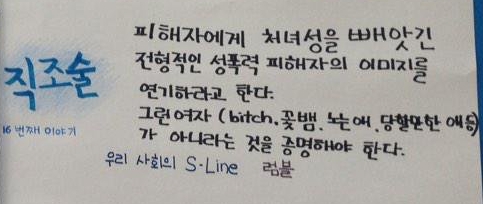 직조술
16 번째 이야기
피해자에게 처녀성을 빼앗긴
전형적인 성폭력 피해자의 이미지를
연기하라고 한다.
그런 여자 (bitch, 꽃뱀, 노는애, 당할만한 애등)
가 아니라는 것을 증명해야 한다.
우리 사회의 S-Line 럼블